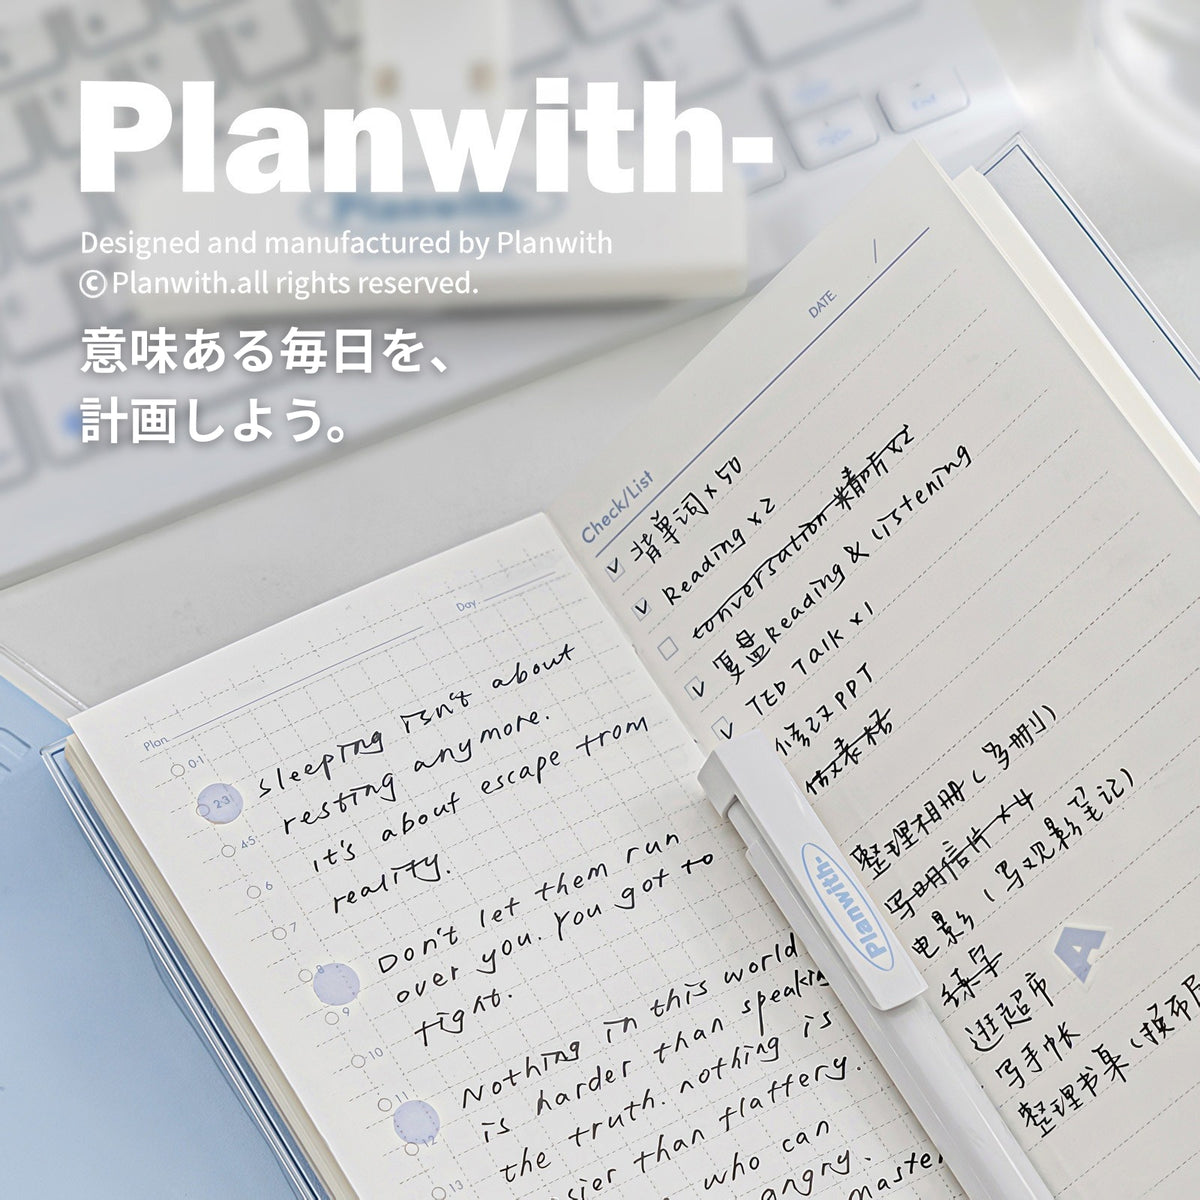 Planwith-
Designed and manufactured by Planwith
©Planwith.all rights reserved.
意味ある毎日を、
計画しよう。
Plan
Day
0·1
2·3
4·5
6
7
8
9
10
11
12
13
sleeping isn't about
resting anymore.
it's about escape from
reality.
Don't let them run
over you. You got to
fight.
Nothing in this world
is harder than speaking
the truth. nothing is
than flattery.
who can
angry.
DATE /
Check/List
背单词 x 50
Reading x 2
conversation 精听 x2
复盘 Reading & Listening
TED Talk x 1
修改PPT
做表格
整理相册(多册!!)
写明信片 x 4
电影(写观影笔记)
练字
逛超市
写手帐
整理书桌
A
Planwith-